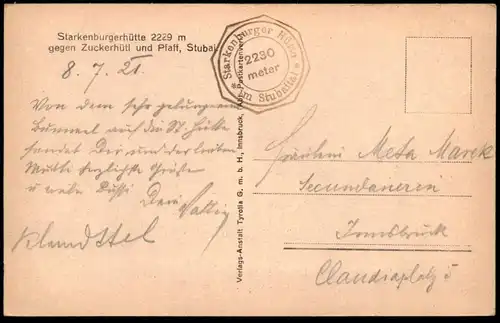 Starkenburgerhütte 2229 m
gegen Zuckerhütl und Pfaff, Stubai
8. 7. 21.
Starkenburger Hütte
2230
meter
* im Stubaital *
Von dem sehr gelungenen
Bummel auf die St. Hütte
sendet Dir und der lieben
Mutti herzlichste Grüße
u. viele Bussi
Dein
Verlags-Anstalt Tyrolia G. m. b. H., Innsbruck,
Fräulein Meta Marek
Secundaneren
Innsbruck
Claudiaplatz